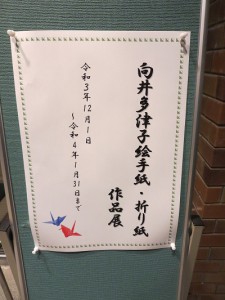 向井多津子絵手紙・折り紙
作品展
令和3年12月1日
～令和4年1月31日まで